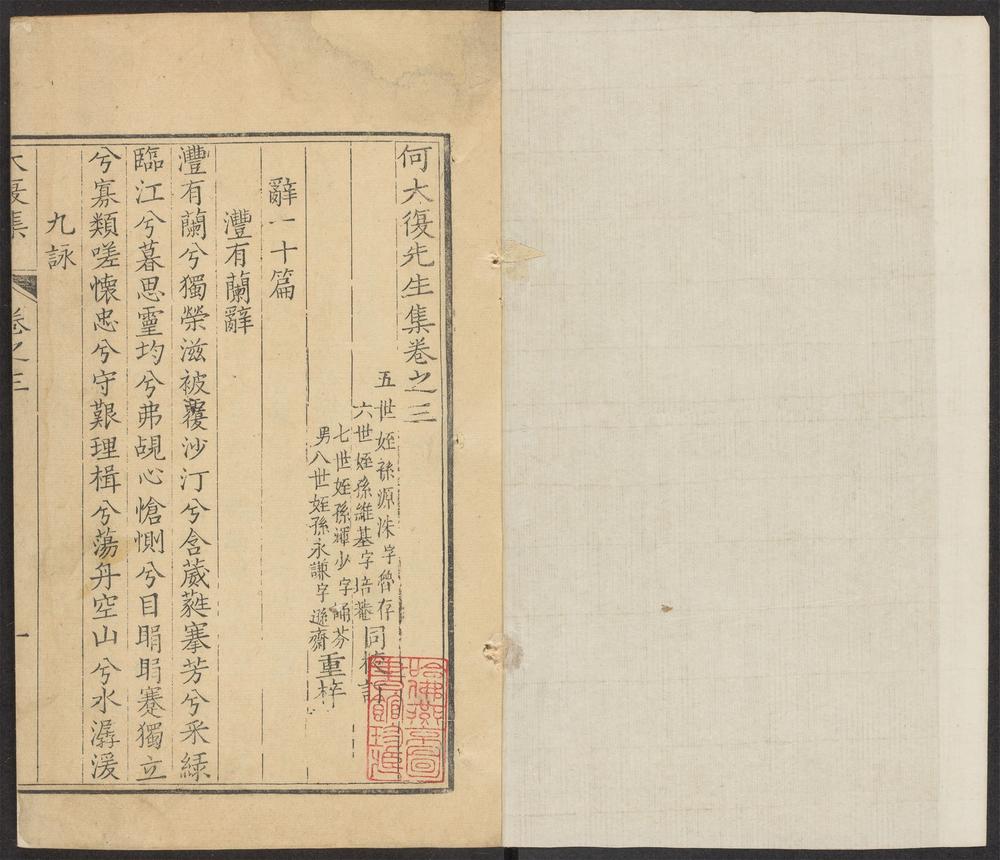 何大復先生集卷之三
五世姪孫源洙字魯存
六世姪孫維基字培菴同校訂
七世姪孫輝少字誦芬
男八世姪孫永謙字遜齋重梓
辭一十篇
灃有蘭辭
灃有蘭兮獨榮滋被覆沙汀兮含葳蕤搴芳兮采綠
臨江兮暮思靈均兮弗覩心愴惻兮目眀眀蹇獨立
兮寡類嗟懷忠兮守艱理楫兮蕩舟空山兮水潺湲
九詠
大復集
卷之三
一
哈佛燕京圖書館珍藏